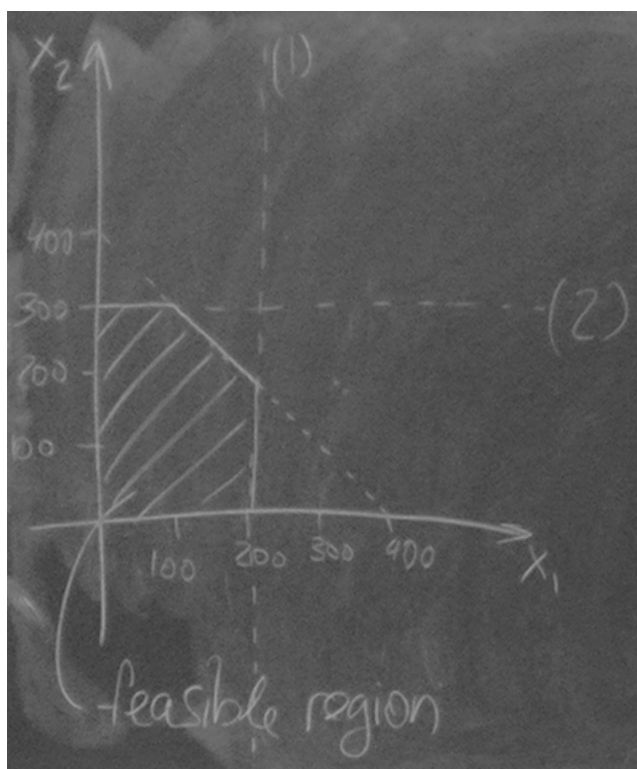 X₂
(1)
400
300
(2)
200
100
100 200 300 400
X₁
feasible region